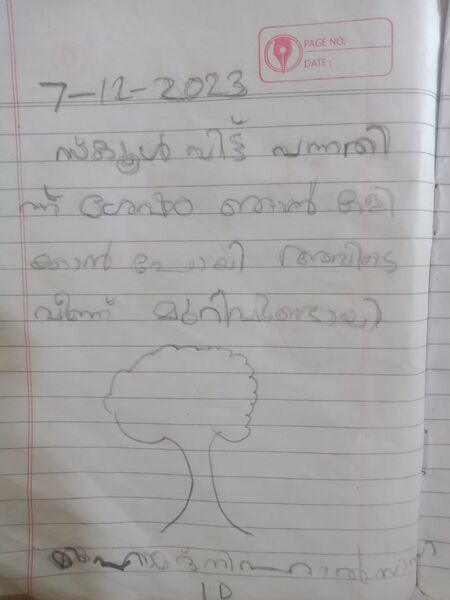 PAGE NO.
DATE :
7-12-2023
സ്കൂൾ വിട്ട് വന്നതി
ന്ന് ശേഷം ഞാൻ കളി
ക്കാൻ പോയി അവിടെ
വീണ് മുറിവുണ്ടായി
1.D